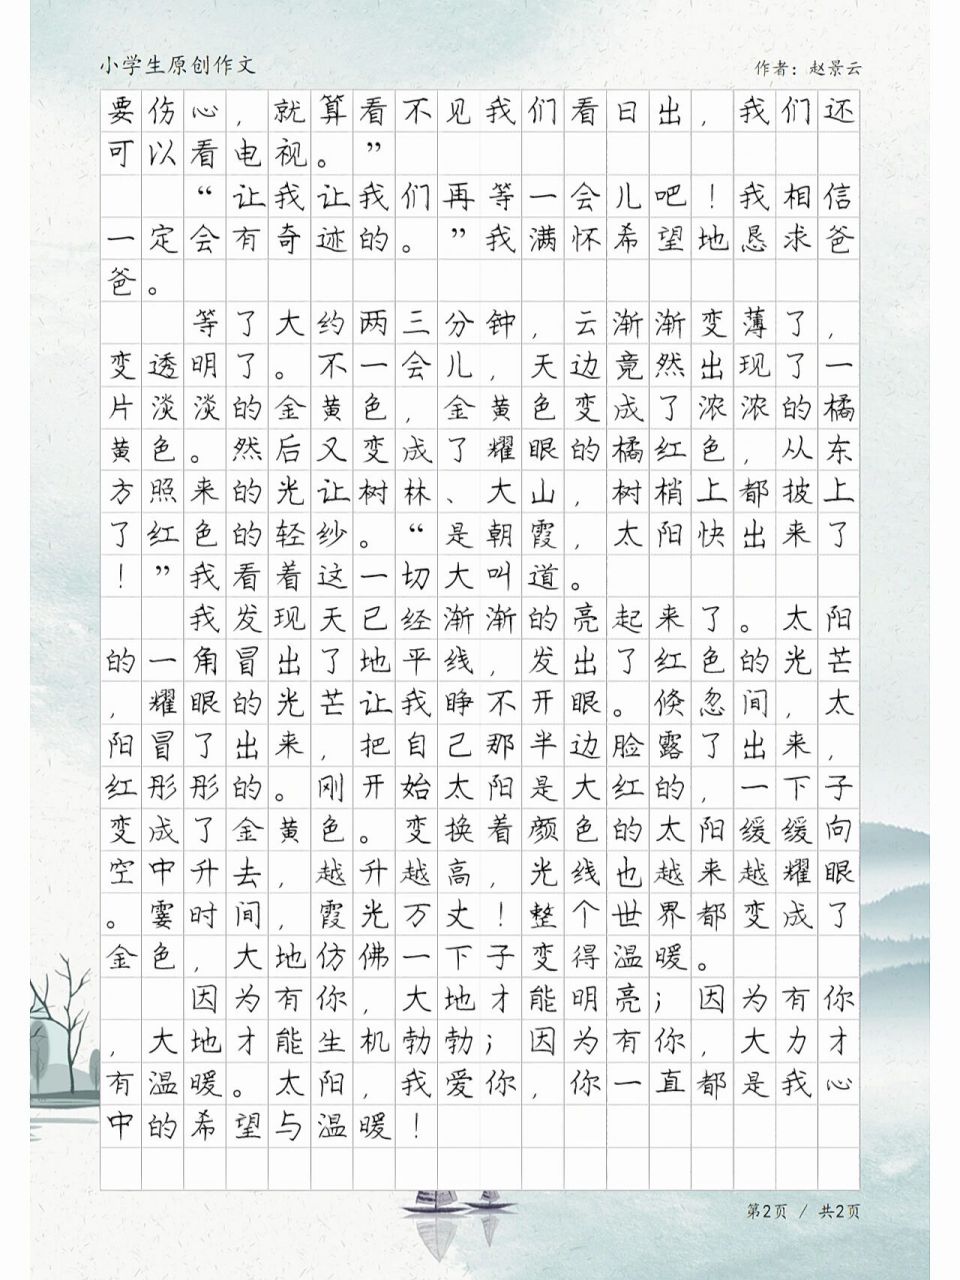 小学生原创作文
作者：赵景云
要伤心，就算看不见我们看日出，我们还
可以看电视。”
“让我让我们再等一会儿吧！我相信
一定会有奇迹的。”我满怀希望地恳求爸
爸。
等了大约两三分钟，云渐渐变薄了，
变透明了。不一会儿，天边竟然出现了一
片淡淡的金黄色，金黄色变成了浓浓的橘
黄色。然后又变成了耀眼的橘红色，从东
方照来的光让树林、大山，树梢上都披上
了红色的轻纱。“是朝霞，太阳快出来了
！”我看着这一切大叫道。
我发现天已经渐渐的亮起来了。太阳
的一角冒出了地平线，发出了红色的光芒
，耀眼的光芒让我睁不开眼。倏忽间，太
阳冒了出来，把自己那半边脸露了出来，
红彤彤的。刚开始太阳是大红的，一下子
变成了金黄色。变换着颜色的太阳缓缓向
空中升去，越升越高，光线也越来越耀眼
。霎时间，霞光万丈！整个世界都变成了
金色，大地仿佛一下子变得温暖。
因为有你，大地才能明亮；因为有你
，大地才能生机勃勃；因为有你，大力才
有温暖。太阳，我爱你，你一直都是我心
中的希望与温暖！
第2页 / 共2页